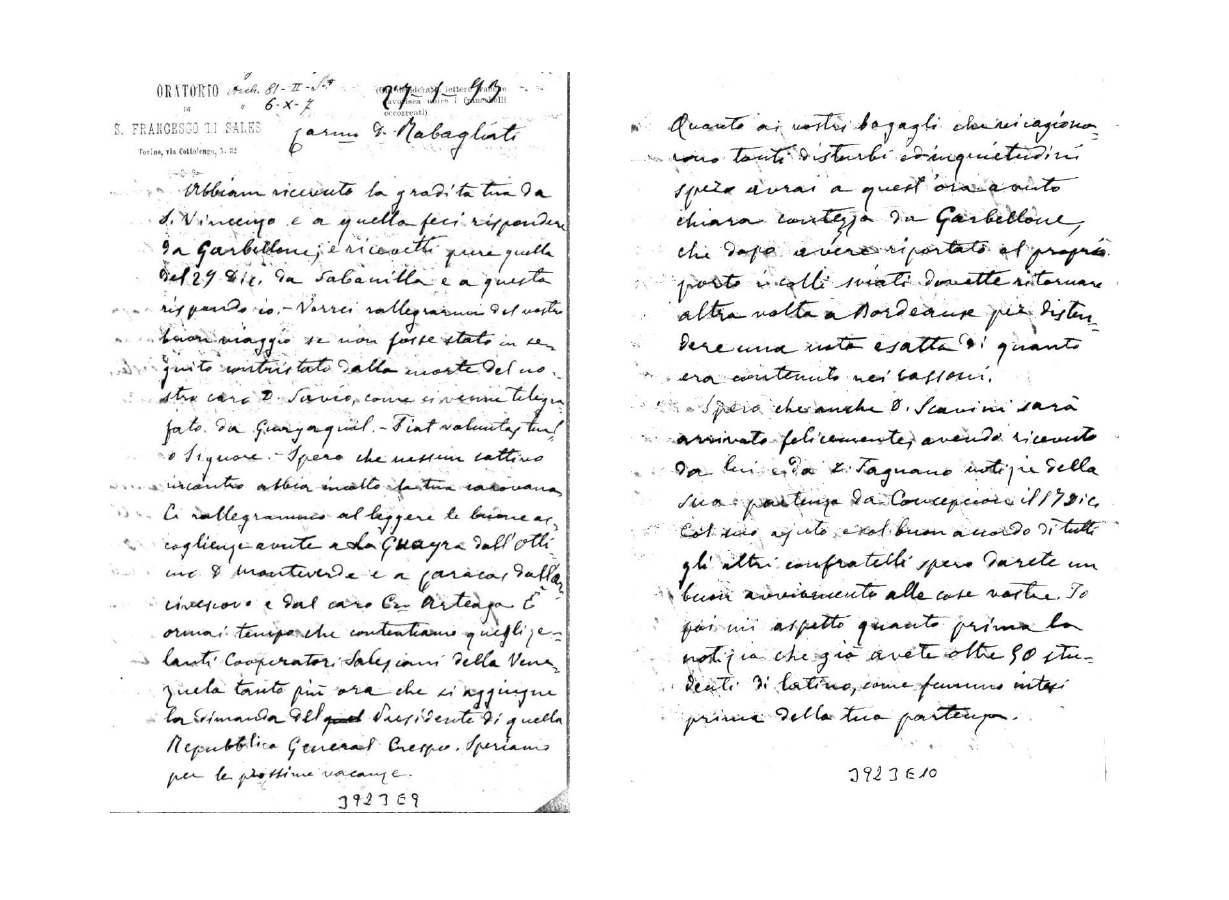 ORATORIO
DI
S. FRANCESCO DI SALES
Torino, via Cottolengo, N. 32
Arch. 81-II-
6-X-7
27-1-93
occorrenti)
Carmo D. Rabagliati
Abbiam ricevuto la gradita tua da
S. Vincenzo e a quella feci rispondere
da Garbellone; e ricevetti pure quella
del 29 Dic. da Sabanilla e a questa
rispondo io. - Vorrei rallegrarmi del vostro
buon viaggio se non fosse stato in se-
guito contristato dalla morte del no-
stro caro D. Savio, come ci venne telegra-
fato da Guayaquil. - Fiat voluntas tua
o Signore. - Spero che nessun cattivo
incontro abbia la tua carovana
Ci rallegrammo al leggere le buone ac-
coglienze avute a La Guayra dall'Otti
mo D Monteverde e a Caracas dall'Ar-
civescovo e dal caro Arteaga È
ormai tempo che contentiamo quegli ze-
lanti Cooperatori Salesiani della Vene-
zuela tanto più ora che si aggiunge
la dimanda del Presidente di quella
Repubblica General Crespo. Speriamo
per le prossime vacanze.
3923E9
Quanto ai vostri bagagli che vi cagiona-
rono tanti disturbi ed inquietudini
spero avrai a quest'ora avuto
chiara contezza da Garbellone,
che dopo avere riportato al proprio
porto i colli sviati dovette ritornare
altra volta a Bordeaux per disten-
dere una nota esatta di quanto
era contenuto nei cassoni.
Spero che anche D. Scavini sarà
arrivato felicemente, avendo ricevuto
da lui e da D. Fagnano notizie della
sua partenza da Concepcion il 17 Dic.
Col suo ajuto e col buon accordo di tutti
gli altri confratelli spero darete un
buon avviamento alle cose vostre. Io
poi mi aspetto quanto prima la
notizia che già avete oltre 50 stu-
denti di latino, come fummo intesi
prima della tua partenza.
3923E10